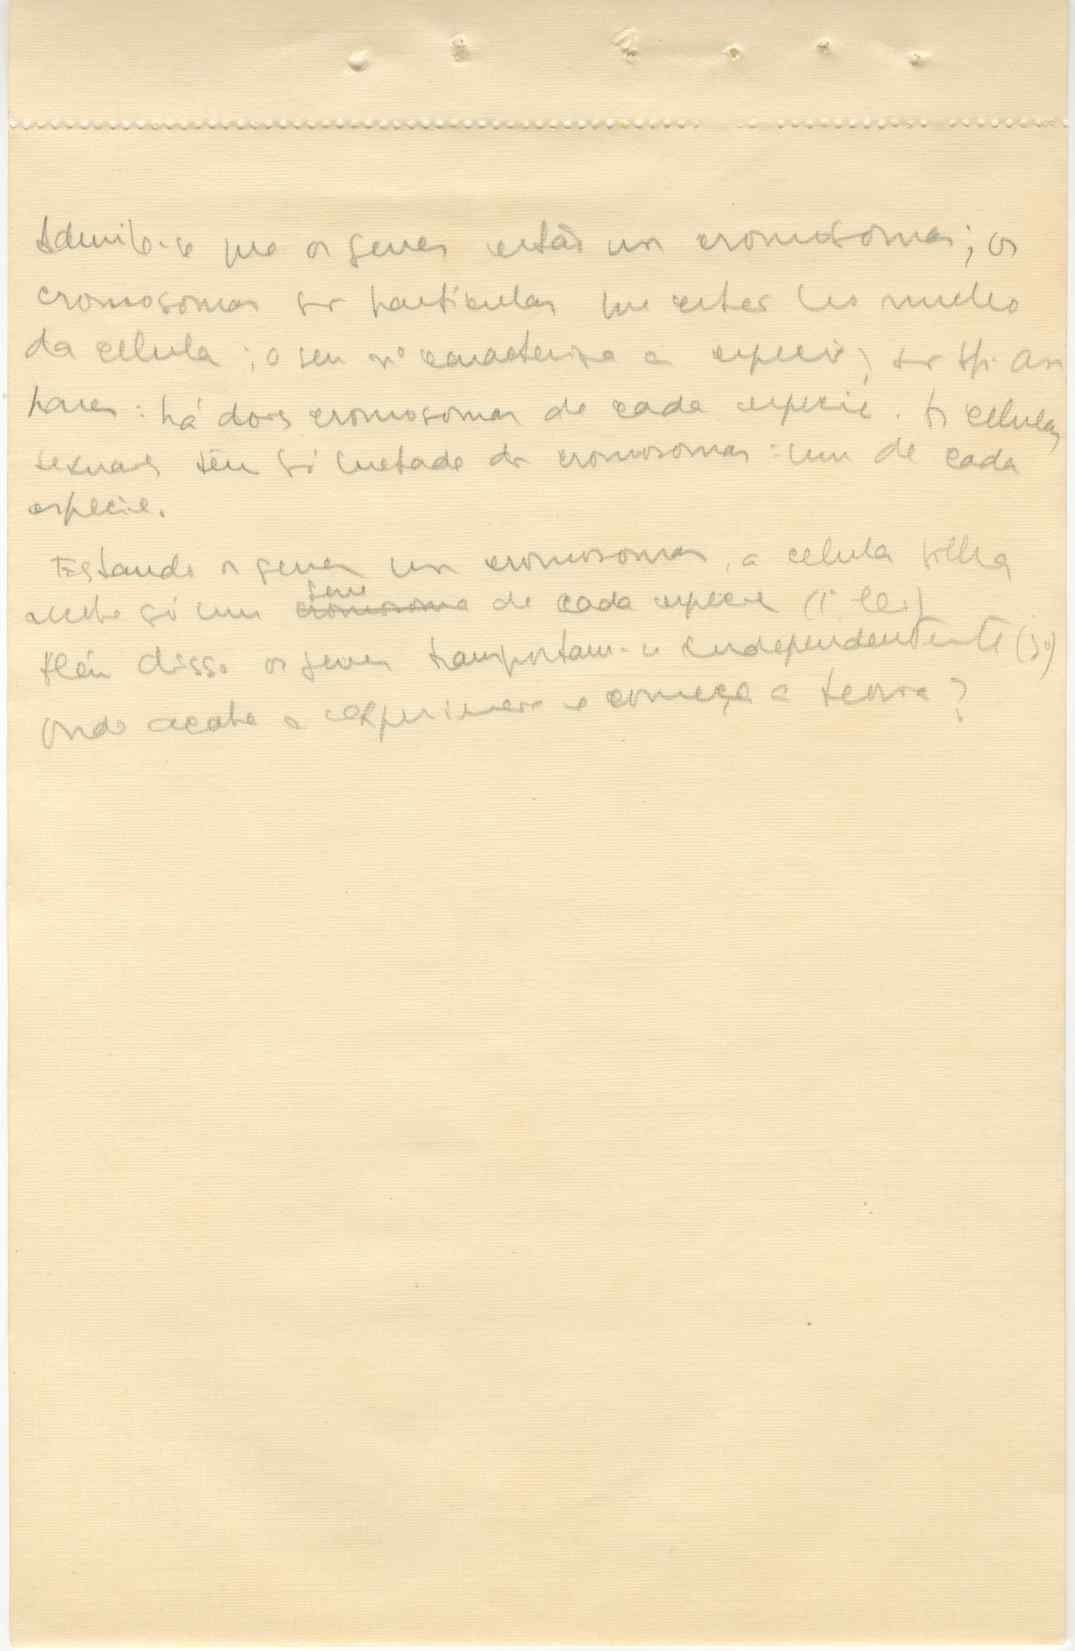 Admite-se que os genes estão nos cromosomas; os
cromosomas são particulas que estão no nucleo
da celula; o seu nº caracteriza a especie; são
pares: há dois cromosomas de cada especie. As celulas
sexuais têm só metade dos cromosomas: um de cada
especie.
Estando os genes nos cromosomas, a celula filha
recebe só um cromosoma gene de cada especie (1ª lei)
Além disso os genes transportam-se independentemente (3ª)
Onde acaba a experiencia e começa a teoria?